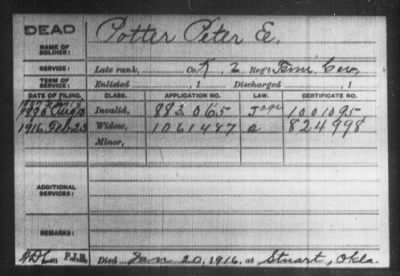 DEAD
Potter Peter E.
NAME OF SOLDIER:
SERVICE: Late rank, Co. K, 2 Reg't Tenn. Cav.
TERM OF SERVICE: Enlisted , 1 Discharged , 1
DATE OF FILING. CLASS. APPLICATION NO. LAW. CERTIFICATE NO.
Invalid, 883.065 1001095
1916 Feb 23 Widow, 1061487 a 824998
Minor,
ADDITIONAL SERVICES:
REMARKS:
P.J.B. Died Jan 20, 1916, at Stuart, Okla.